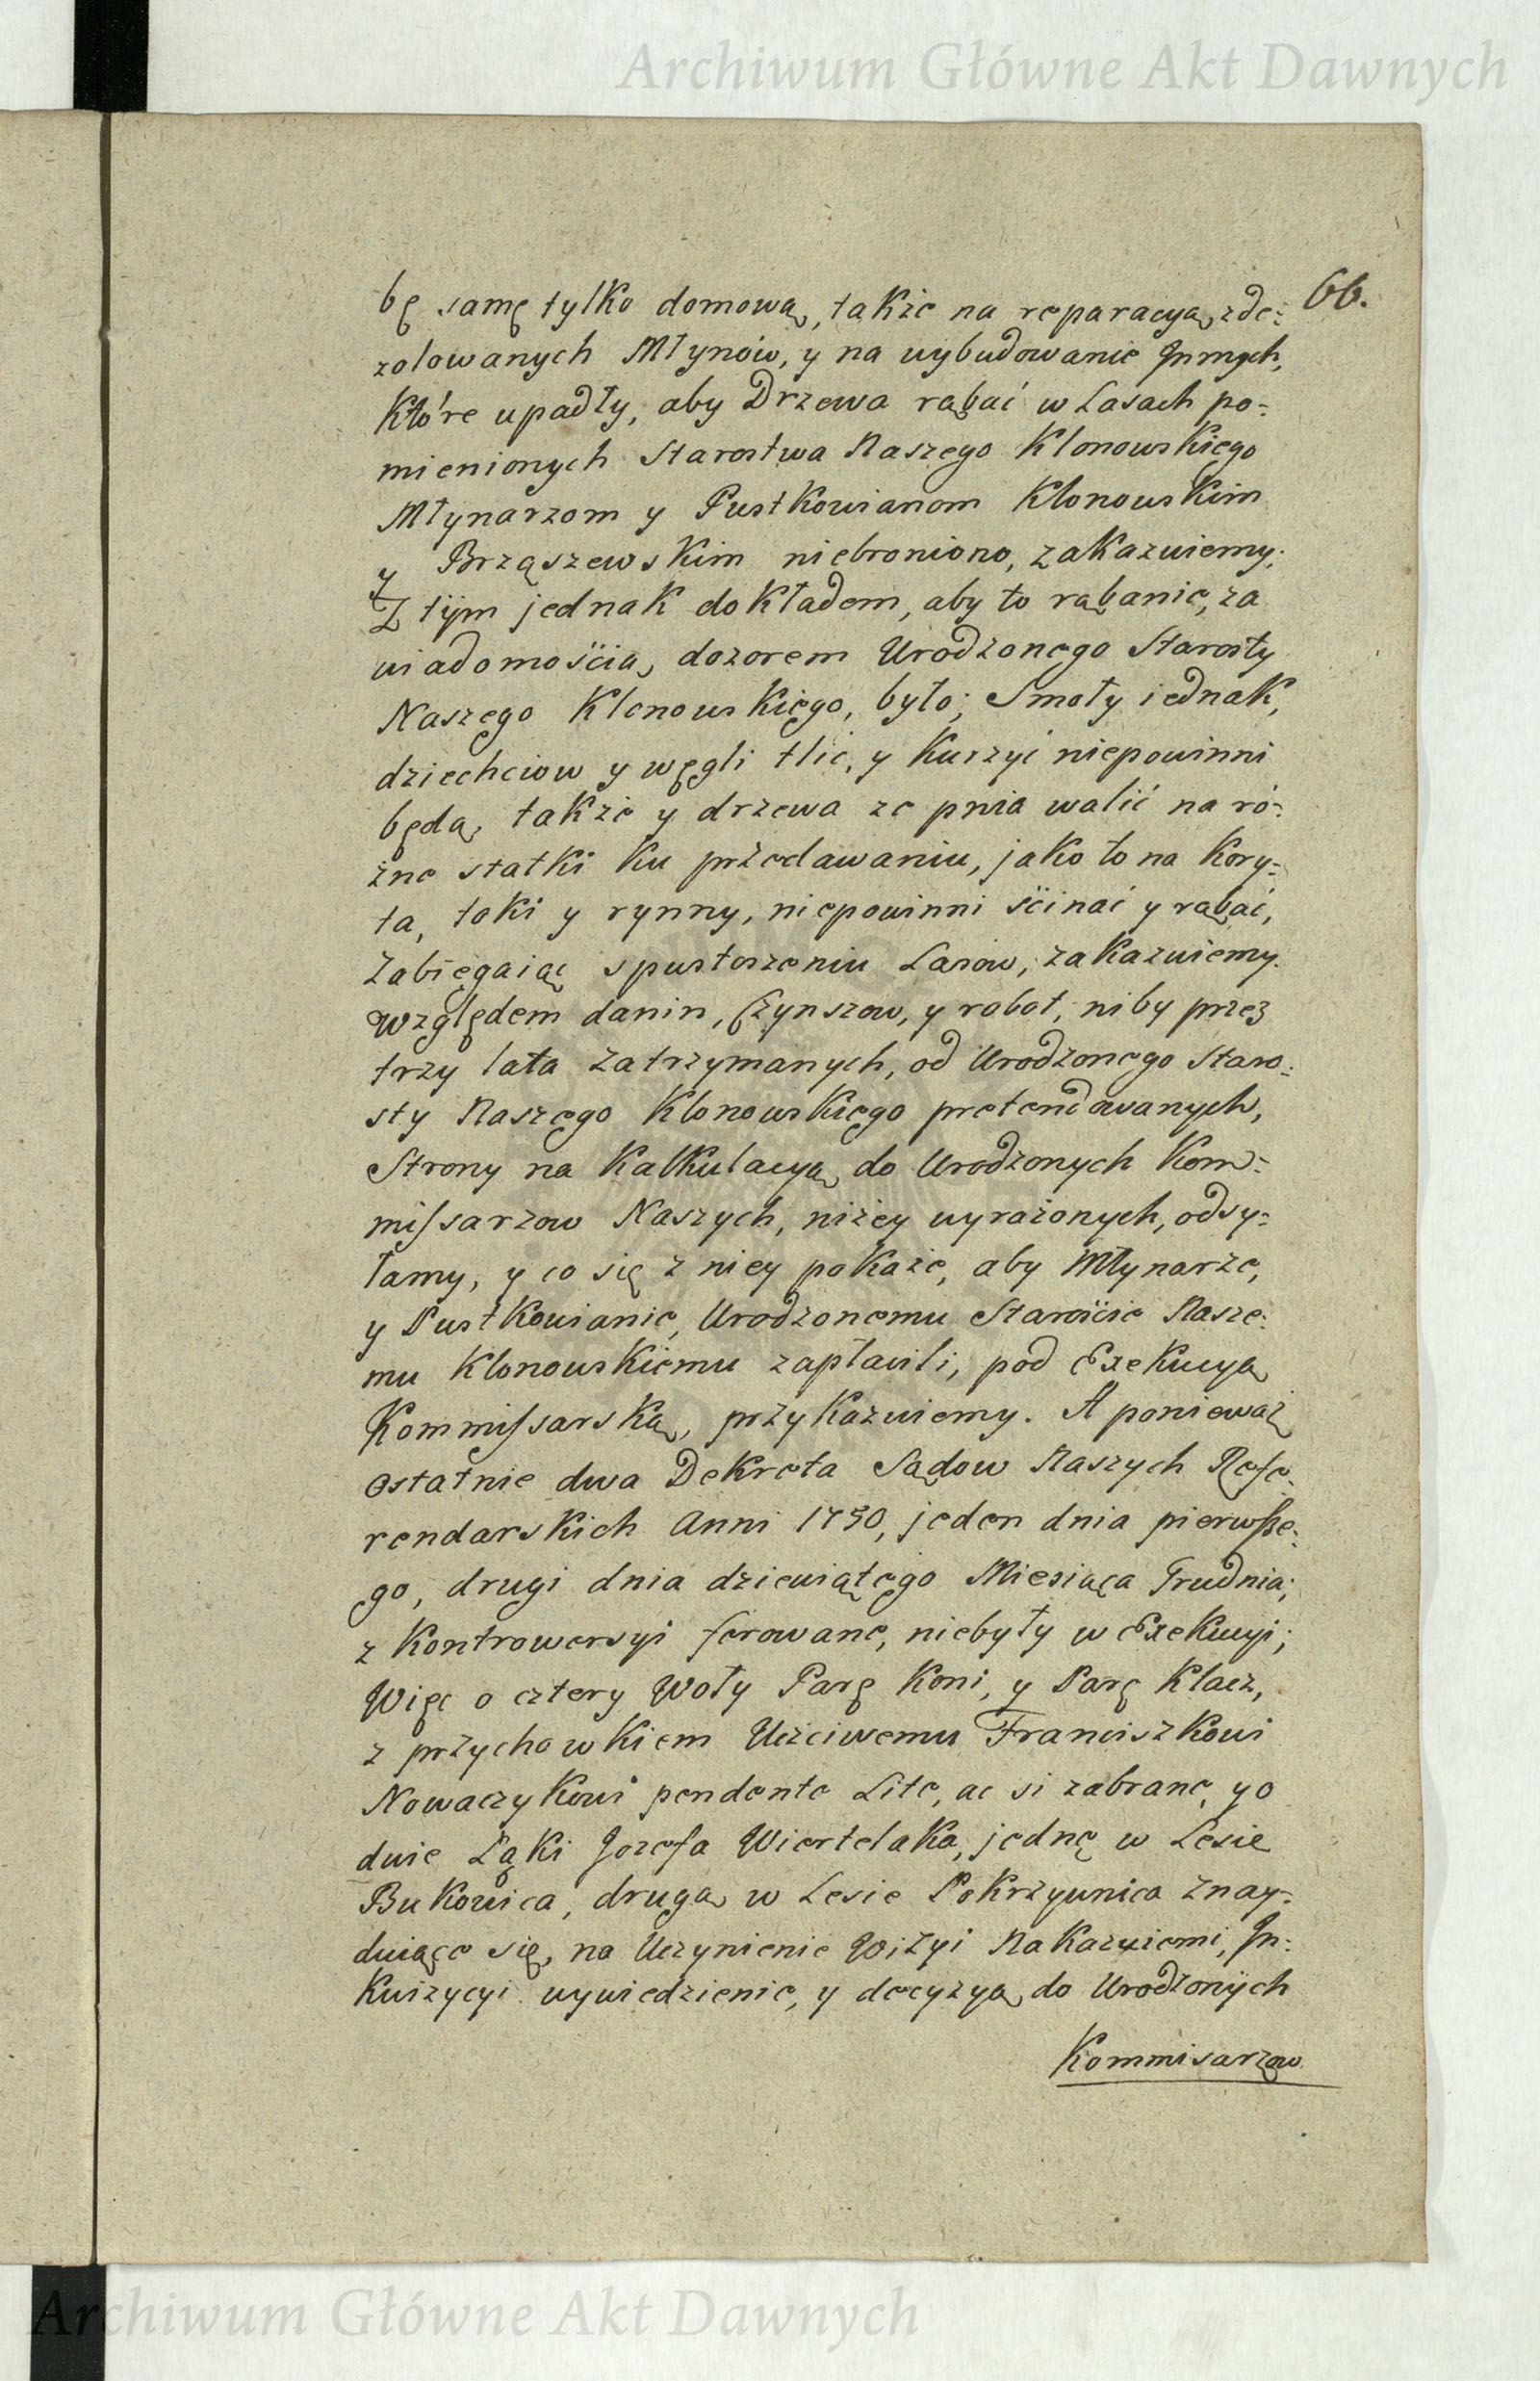 Archiwum Główne Akt Dawnych
66.
bę samę tylko domową, także na reparacyą zde:
zolowanych Młynów, y na wybudowanie Jnnych,
które upadły, aby Drzewa rąbać w Lasach po:
mienionych Starostwa Naszego Klonowskiego
Młynarzom y Pustkowianom Klonowskim
y Brząszewskim niebroniono, zakazuiemy;
Z tÿm jednak dokładem, aby to rąbanie, za
wiadomością, dozorem Urodzonego Starosty
Naszego Klonowskiego, było; Smoły iednak,
dziechciow y węgli tlić, y kurzyć niepowinni
będą, także y drzewa ze pnia walić na ró:
żne statki ku przedawaniu, jako to na kory:
ta, toki y rynny, niepowinni ścinać y rąbać,
Zabiegaiąc spustoszeniu Lasow, zakazuiemy.
Względem danin, Czynszow, y robot, niby przez
trzy lata zatrzymanych, od Urodzonego Staro:
sty Naszego Klonowskiego pretendowanych,
Strony na Kalkulacyą do Urodzonych Kom:
missarzow Naszych, niżey wyrażonych, odsy:
łamy, y co się z niey pokaże, aby Młynarze,
y Pustkowianie, Urodzonemu Starościc Nasze:
mu Klonowskiemu zapłacili, pod Exekucyą
Kommissarską, przykazuiemy. A ponieważ
ostatnie dwa Dekreta Sądow Naszych Refe:
rendarskich Anni 1750, jeden dnia pierwsze:
go, drugi dnia dziewiątego Miesiąca Grudnia;
z Kontrowersyi ferowane, niebyły w Exekucyi;
Więc o cztery Woły Parę Koni, y Parę Klacz,
z przychowkiem Uczciwemu Franciszkowi
Nowaczykowi pendente Lite, ac si zabrane, y o
dwie Łąki Jozefa Wiertelaka, jednę w Lesie
Bukowica, drugą w Lesie Pokrzywnica znay:
duiące się, na Uczynienie Wizyi Nakazuiemi, Jn:
kwizycyi wywiedzienie, y decyzyą do Urodzonÿch
Kommisarzow
Archiwum Główne Akt Dawnych